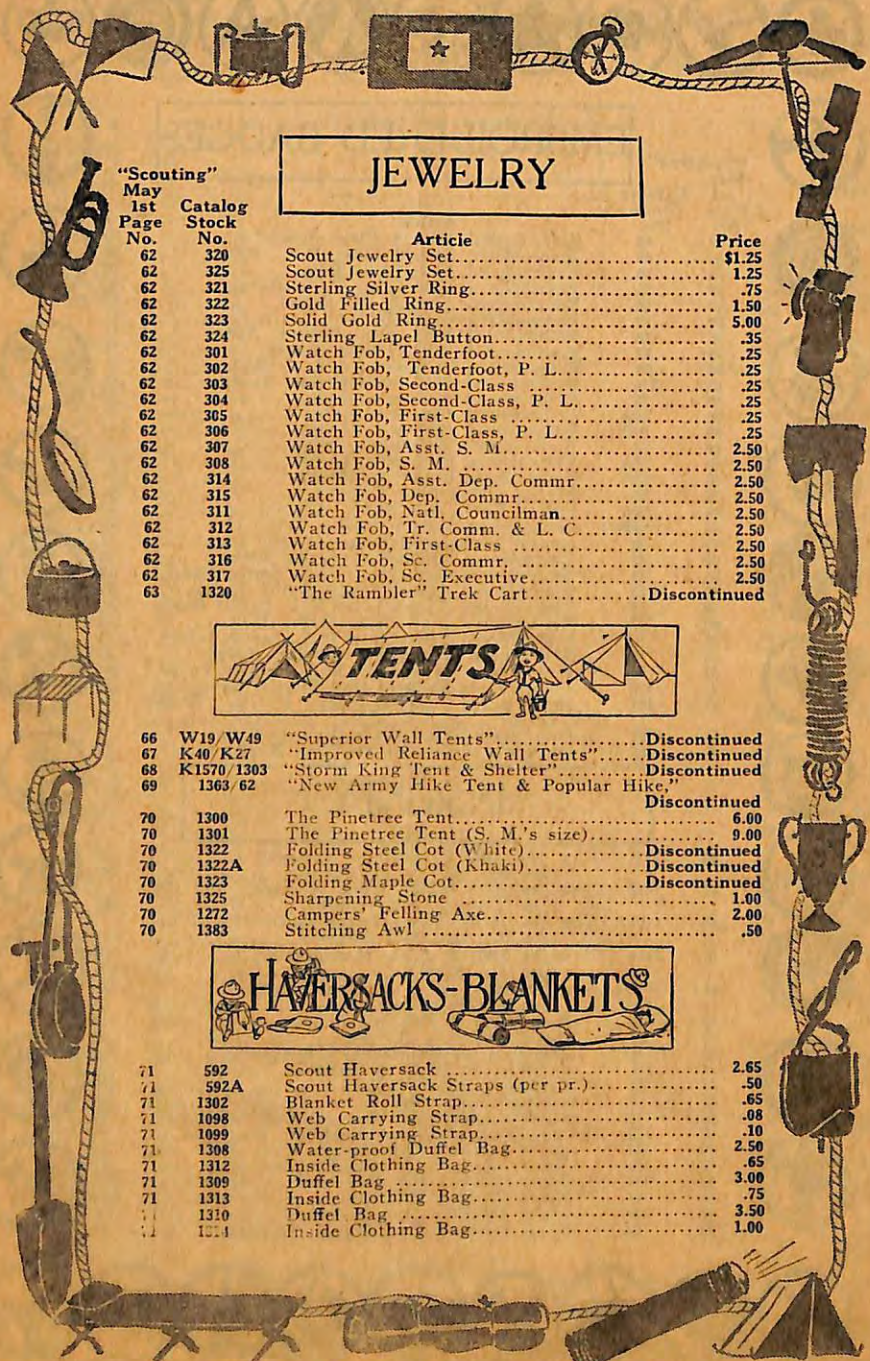 JEWELRY
"Scouting"
May
1st Catalog
Page Stock
No. No. Article Price
62 320 Scout Jewelry Set................................ $1.25
62 325 Scout Jewelry Set................................ 1.25
62 321 Sterling Silver Ring.............................. .75
62 322 Gold Filled Ring................................. 1.50
62 323 Solid Gold Ring.................................. 5.00
62 324 Sterling Lapel Button............................ .35
62 301 Watch Fob, Tenderfoot........................... .25
62 302 Watch Fob, Tenderfoot, P. L..................... .25
62 303 Watch Fob, Second-Class ........................ .25
62 304 Watch Fob, Second-Class, P. L................... .25
62 305 Watch Fob, First-Class ......................... .25
62 306 Watch Fob, First-Class, P. L.................... .25
62 307 Watch Fob, Asst. S. M........................... 2.50
62 308 Watch Fob, S. M. ............................... 2.50
62 314 Watch Fob, Asst. Dep. Commr..................... 2.50
62 315 Watch Fob, Dep. Commr........................... 2.50
62 311 Watch Fob, Natl. Councilman..................... 2.50
62 312 Watch Fob, Tr. Comm. & L. C..................... 2.50
62 313 Watch Fob, First-Class ......................... 2.50
62 316 Watch Fob, Sc. Commr. .......................... 2.50
62 317 Watch Fob, Sc. Executive........................ 2.50
63 1320 "The Rambler" Trek Cart...............Discontinued
TENTS
66 W19/W49 "Superior Wall Tents"...................Discontinued
67 K40/K27 "Improved Reliance Wall Tents"......Discontinued
68 K1570/1303 "Storm King Tent & Shelter"..........Discontinued
69 1363/62 "New Army Hike Tent & Popular Hike,"
Discontinued
70 1300 The Pinetree Tent............................... 6.00
70 1301 The Pinetree Tent (S. M.'s size)................ 9.00
70 1322 Folding Steel Cot (White)...............Discontinued
70 1322A Folding Steel Cot (Khaki)...............Discontinued
70 1323 Folding Maple Cot.......................Discontinued
70 1325 Sharpening Stone ............................... 1.00
70 1272 Campers' Felling Axe............................ 2.00
70 1383 Stitching Awl .................................. .50
HAVERSACKS-BLANKETS
71 592 Scout Haversack ................................ 2.65
71 592A Scout Haversack Straps (per pr.)................ .50
71 1302 Blanket Roll Strap.............................. .65
71 1098 Web Carrying Strap.............................. .08
71 1099 Web Carrying Strap.............................. .10
71 1308 Water-proof Duffel Bag.......................... 2.50
71 1312 Inside Clothing Bag............................. .65
71 1309 Duffel Bag ..................................... 3.00
71 1313 Inside Clothing Bag............................. .75
1310 Duffel Bag ..................................... 3.50
Inside Clothing Bag............................. 1.00